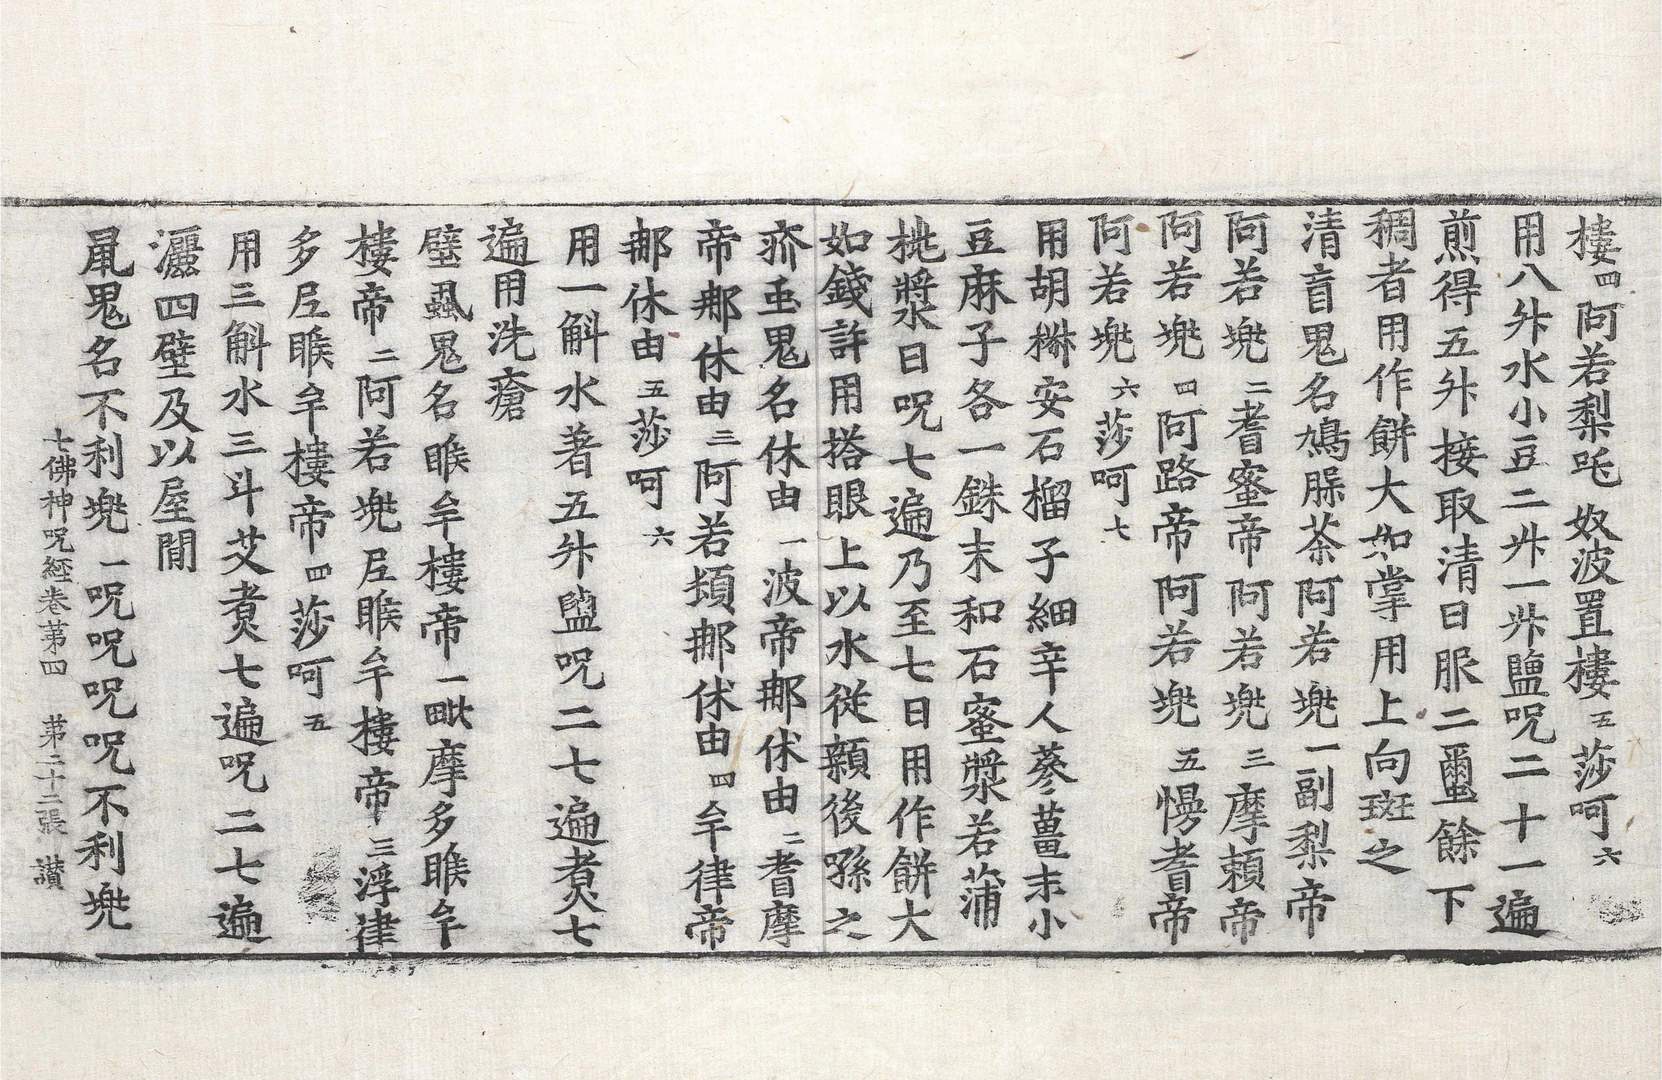 樓四阿若梨吒奴波置樓五莎呵六
用八升水小豆二升一升鹽呪二十一遍
煎得五升接取清日服二蠒餘下
稠者用作餅大如掌用上向斑之
清盲鬼名鳩腜茶阿若兜一副梨帝
阿若兜二耆蜜帝阿若兜三摩賴帝
阿若兜四阿路帝阿若兜五慢耆帝
阿若兜六莎呵七
用胡椒安石榴子細辛人蔘薑末小
豆麻子各一銖末和石蜜漿若蒲
桃漿日呪七遍乃至七日用作餅大
如錢許用搭眼上以水從額後孫之
疥虫鬼名休由一波帝那休由二耆摩
帝那休由三阿若頞那休由四牟律帝
那休由五莎呵六
用一斛水著五升鹽呪二七遍煑七
遍用洗瘡
壁蝨鬼名睺牟樓帝一毗摩多睺牟
樓帝二阿若兜𡰱睺牟樓帝三浮律
多𡰱睺牟樓帝四莎呵五
用三斛水三斗艾煑七遍呪二七遍
灑四壁及以屋間
鼠鬼名不利兜一呪呪呪呪不利兜
七佛神呪經卷第四　第二十二張　讃